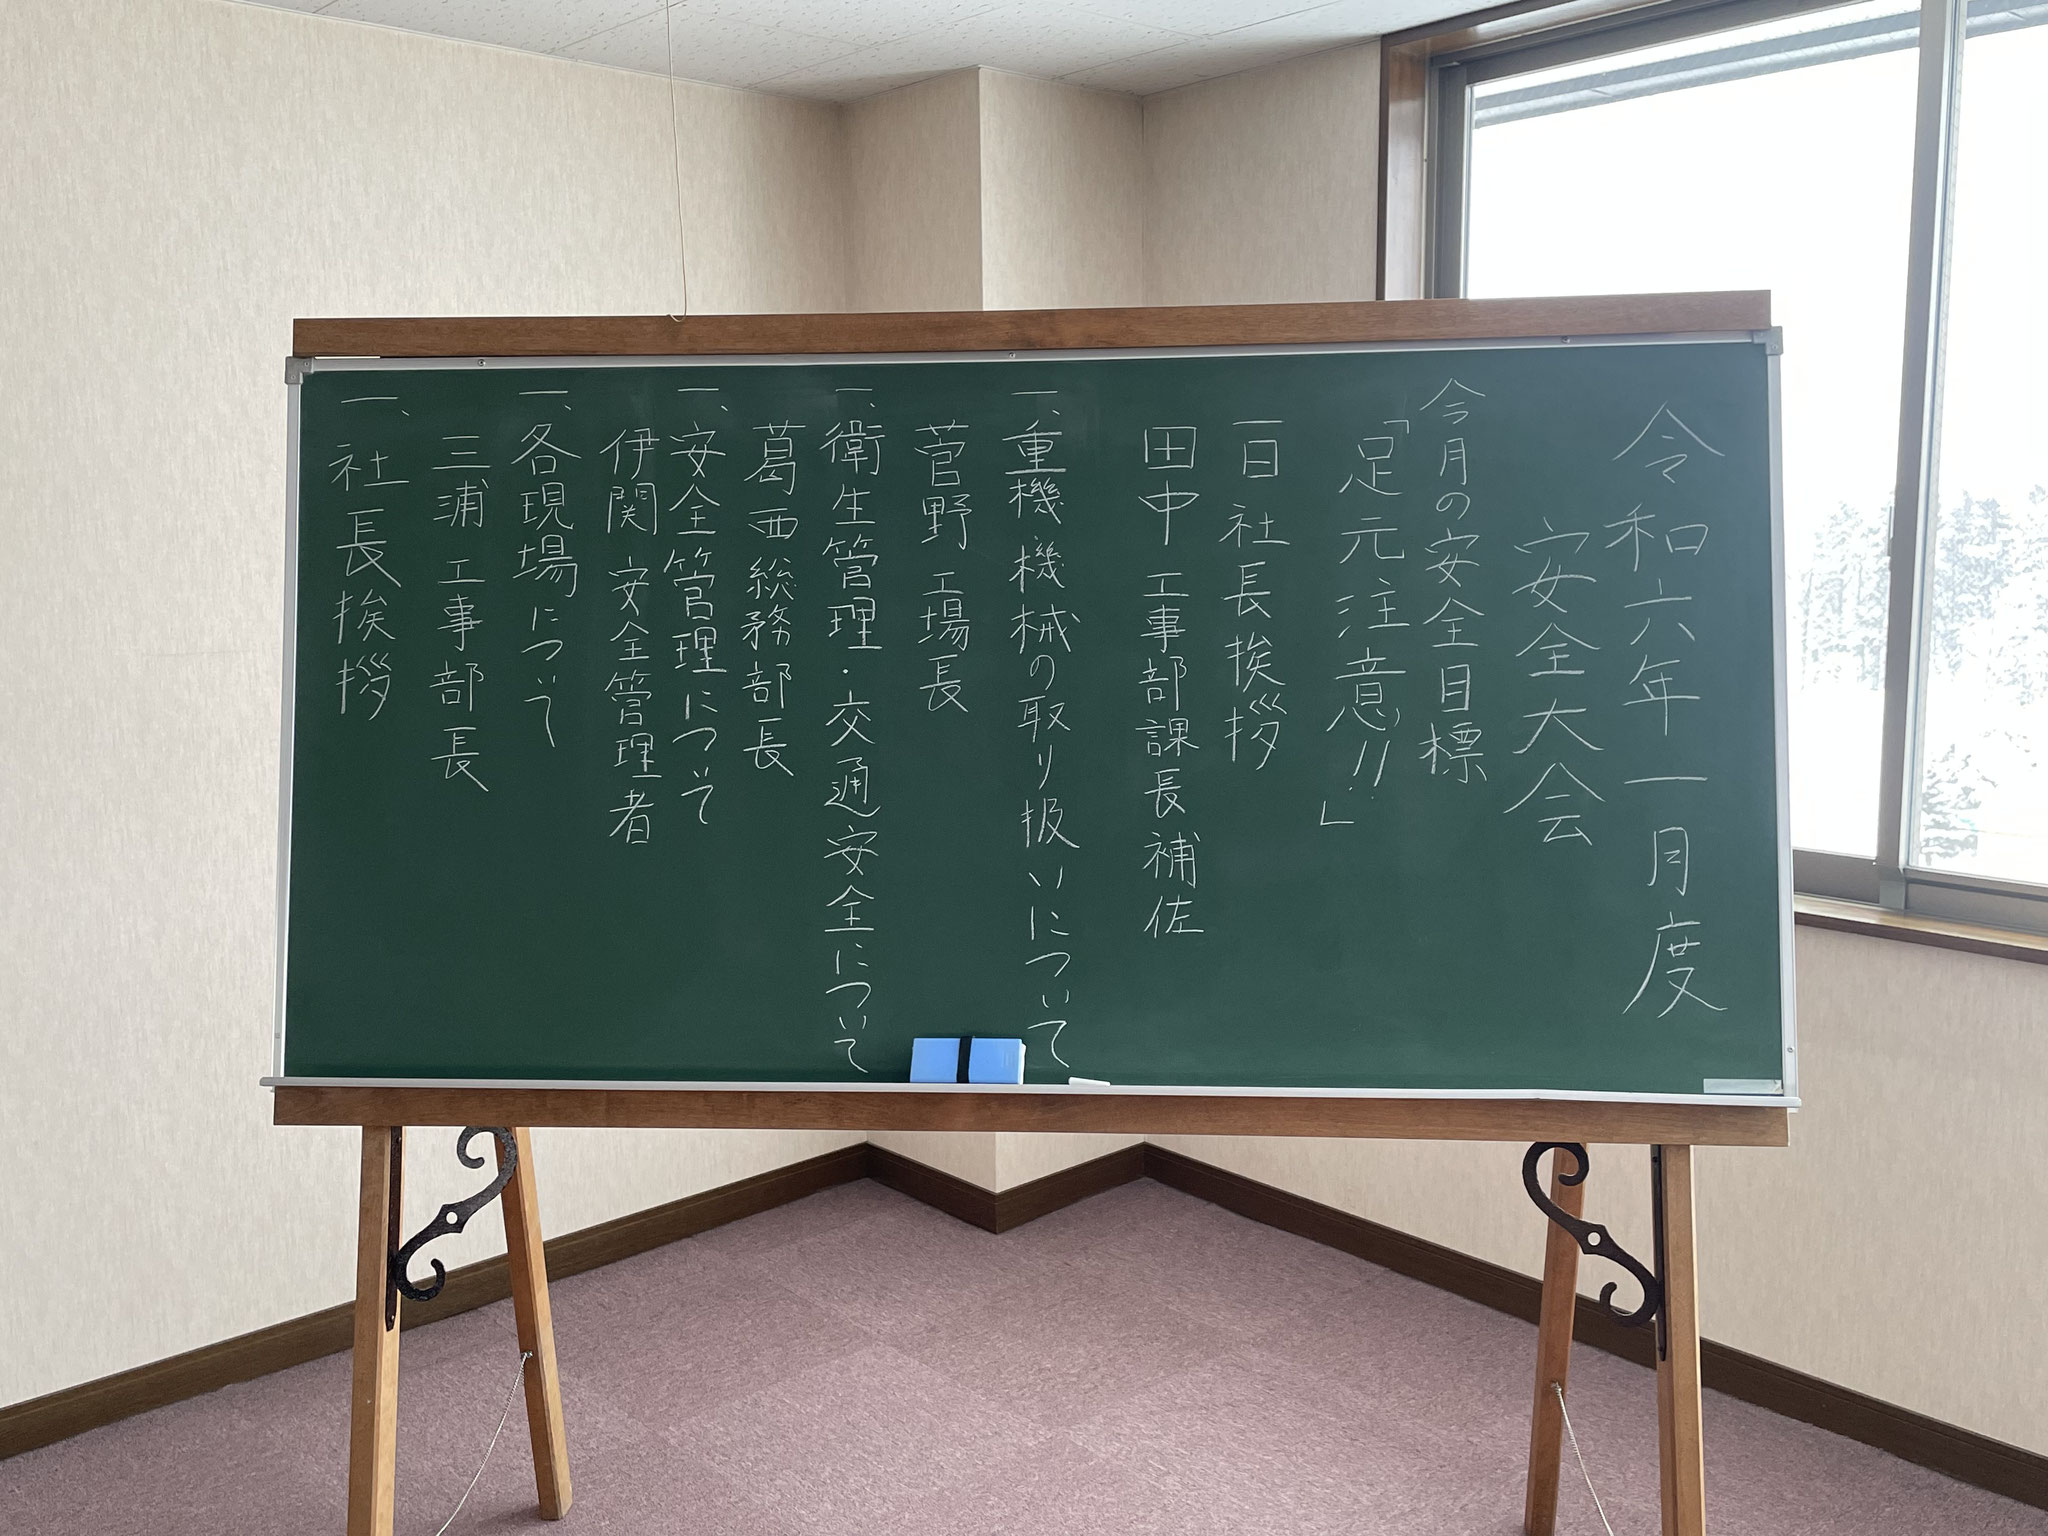 令和六年一月度
安全大会
今月の安全目標
「足元注意!!」
一日社長挨拶
田中 工事部課長補佐
一、重機機械の取り扱いについて
菅野 工場長
一、衛生管理・交通安全について
葛西総務部長
一、安全管理について
伊関 安全管理者
一、各現場について
三浦 工事部長
一、社長挨拶